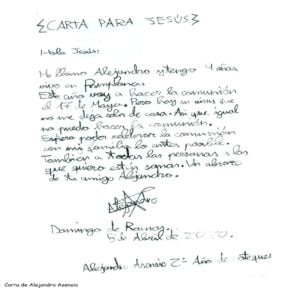 {CARTA PARA JESÚS}
Hola Jesús:
Me llamo Alejandro y tengo 9 años
vivo en Pamplona.
Este año voy a hacer la comunión
el 17 de Mayo. Pero hay un virus que
no me deja salir de casa. Así que igual
no puedo hacer la comunión.
Espero poder celebrar la comunión
con mi familia lo antes posible.
También a todas las personas a las
que quiero estén sanas. Un abrazo
de tu amigo Alejandro.
Alejandro
Domingo de Ramos,
5 de Abril de 2020
Alejandro Asensio 2º Año de
Carta de Alejandro Asensio